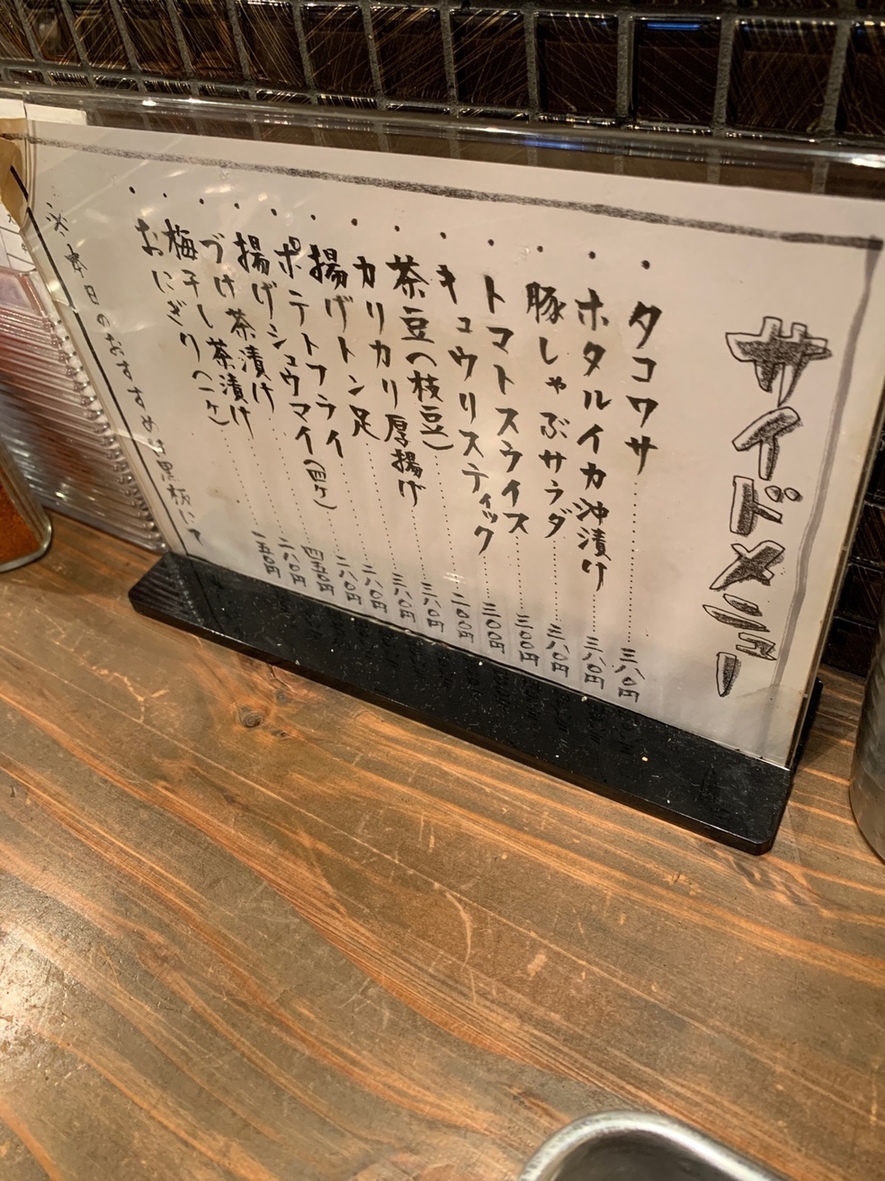 サイドメニュー
・タコワサ……三八〇円
・ホタルイカ沖漬け……三八〇円
・豚しゃぶサラダ……三八〇円
・トマトスライス……三〇〇円
・キュウリスティック……三〇〇円
・茶豆(枝豆)……二八〇円
・カリカリ厚揚げ……三八〇円
・揚げトン足……三八〇円
・ポテトフライ……二八〇円
・揚げシュウマイ(四ケ)……二八〇円
・づけ茶漬け……四五〇円
・梅干し茶漬け……二八〇円
・おにぎり(一ケ)……一五〇円
※本日のおすすめは黒板にて